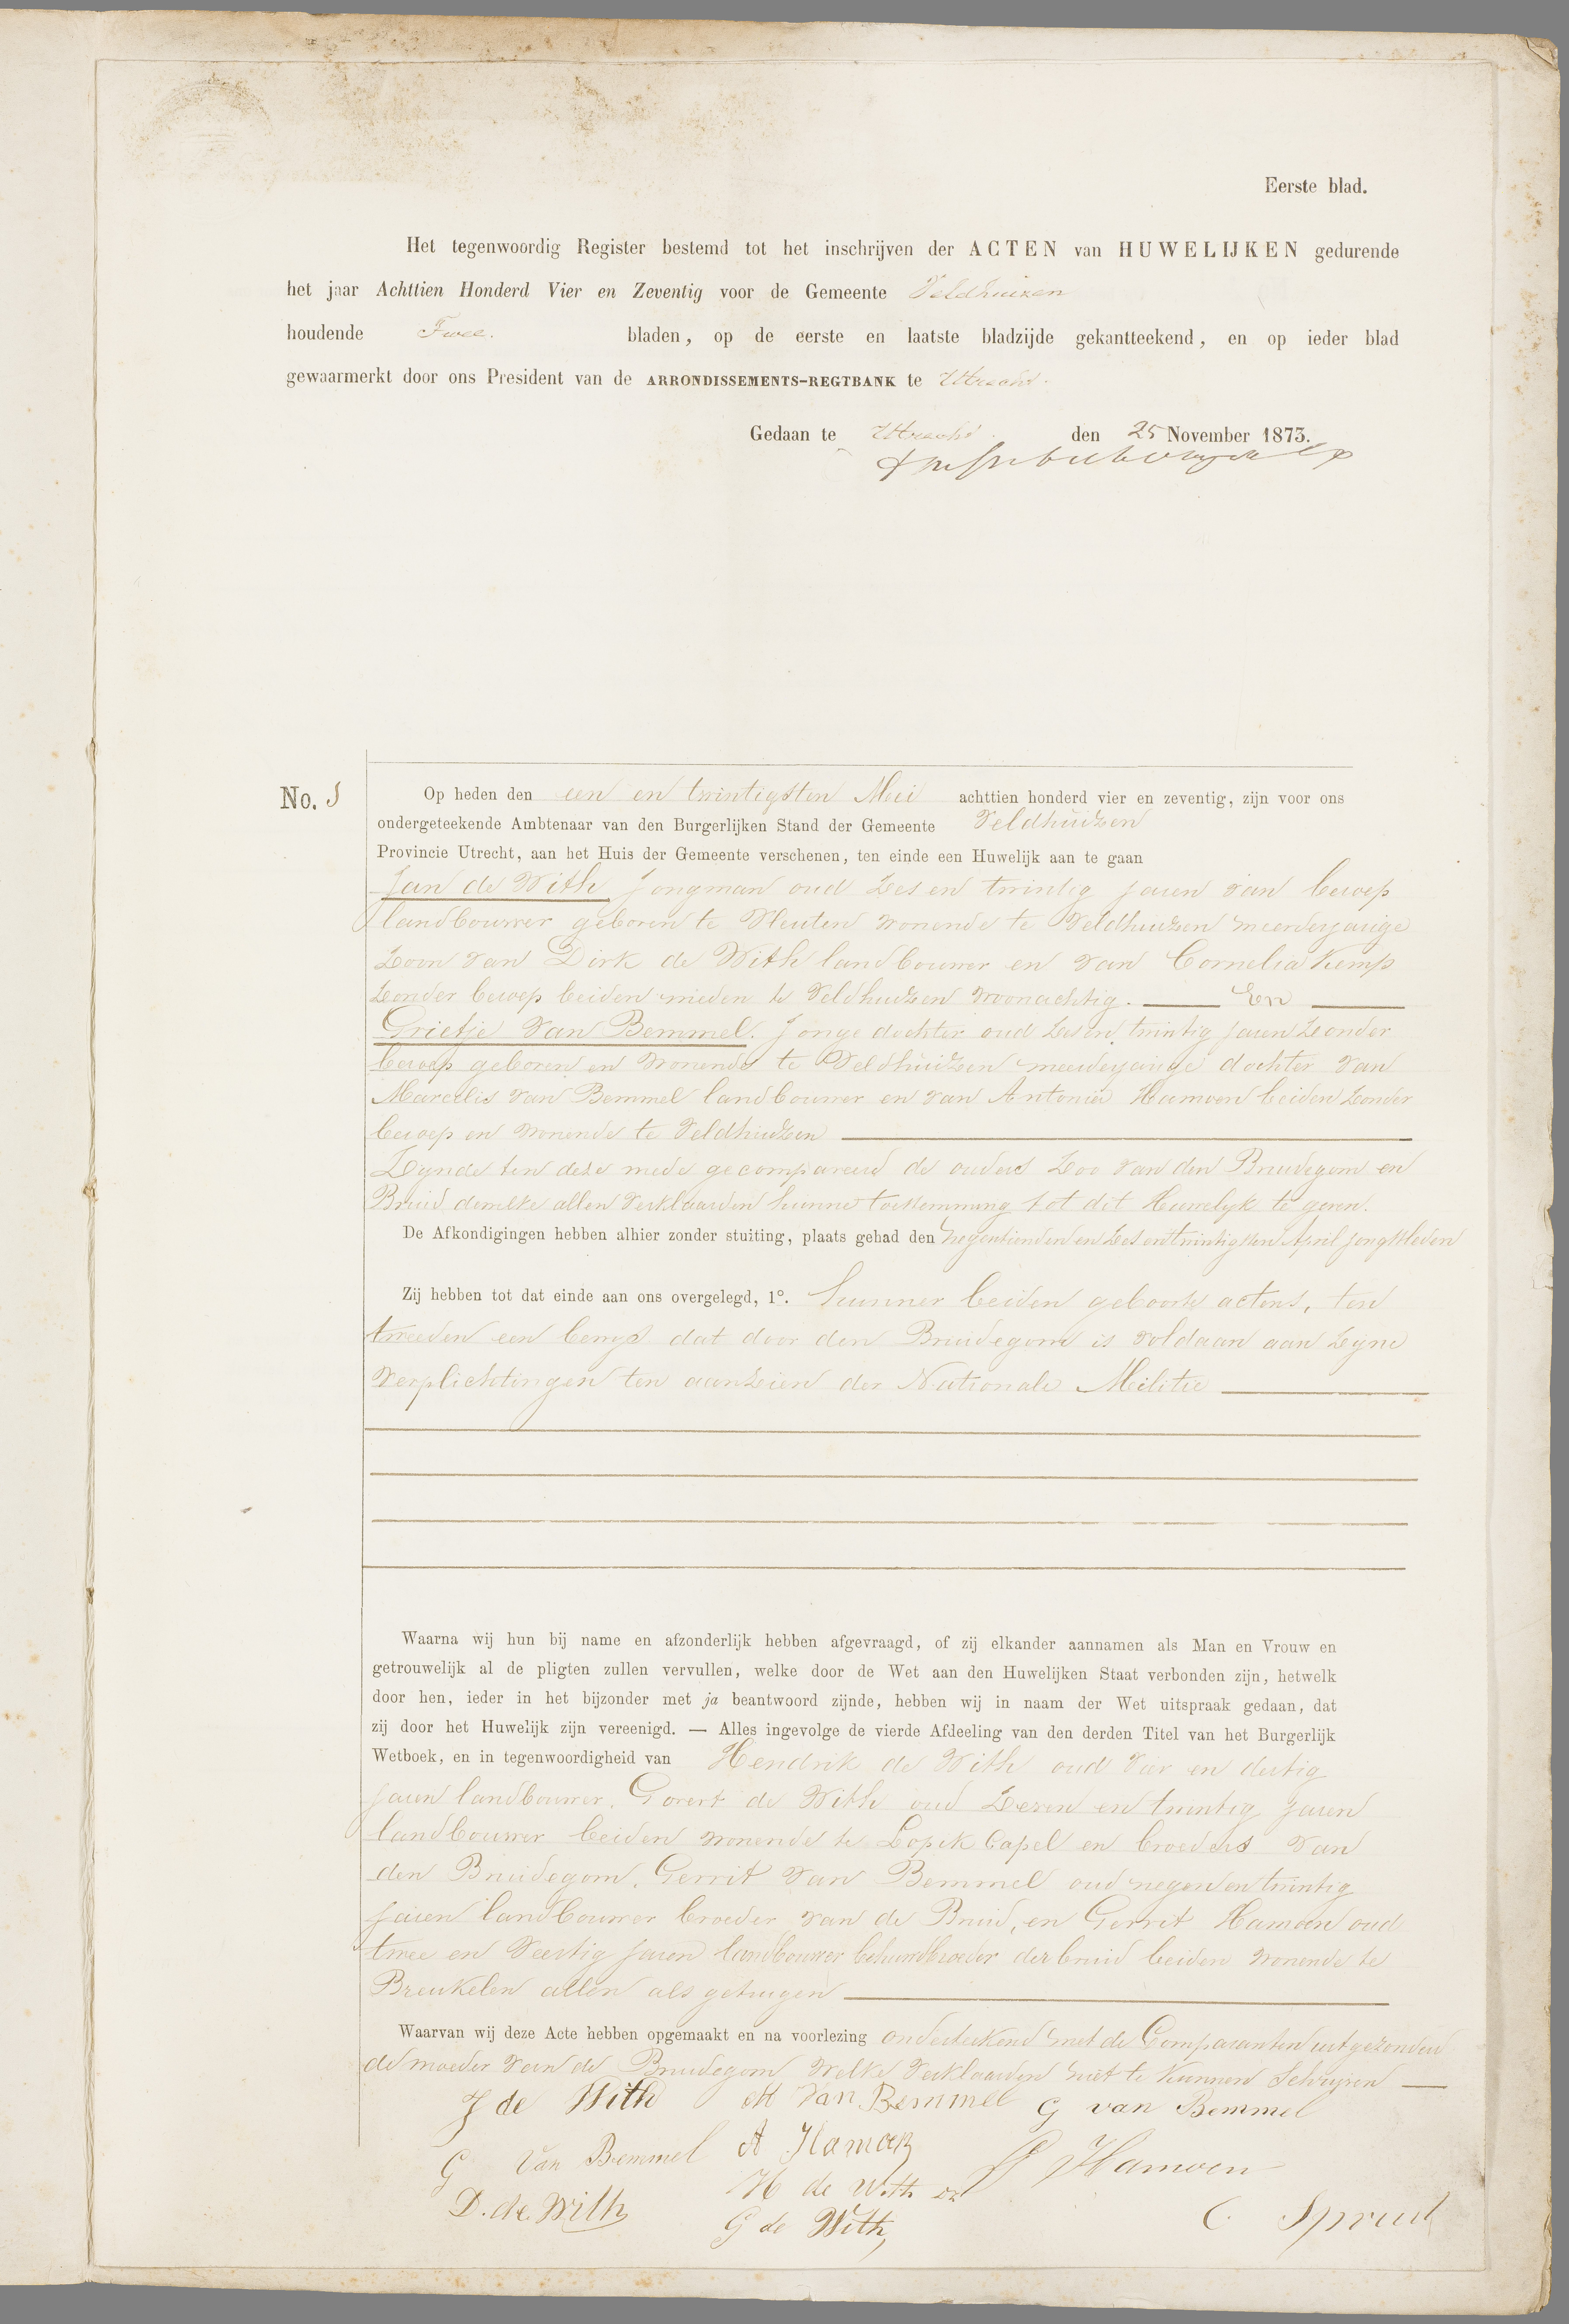 Eerste blad.
Het tegenwoordig Register bestemd tot het inschrijven der ACTEN van HUWELIJKEN gedurende
het jaar Achttien Honderd Vier en Zeventig voor de Gemeente Veldhuizen
houdende Twee. bladen, op de eerste en laatste bladzijde gekantteekend, en op ieder blad
gewaarmerkt door ons President van de ARRONDISSEMENTS-REGTBANK te Utrecht.
Gedaan te Utrecht. den 25 November 1873.
No. 1
Op heden den een en twintigsten Mei achttien honderd vier en zeventig, zijn voor ons
ondergeteekende Ambtenaar van den Burgerlijken Stand der Gemeente Veldhuizen
Provincie Utrecht, aan het Huis der Gemeente verschenen, ten einde een Huwelijk aan te gaan
Jan de With Jongman oud zes en twintig jaren van beroep
landbouwer geboren te Vleuten wonende te Veldhuizen meerderjarige
zoon van Dirk de With landbouwer en van Cornelia Kemp
zonder beroep beiden mieden te Veldhuizen woonachtig. En
Grietje van Bemmel. Jonge dochter oud zes en twintig jaren zonder
beroep geboren en wonende te Veldhuizen meerderjarige dochter van
Marcelis van Bemmel landbouwer en van Antonia Hamoen beiden zonder
beroep en wonende te Veldhuizen
Zynde ten deze mede gecompareerd de ouders zoo van den Bruidegom en
Bruid dewelke allen verklaarden hunne toestemming tot dit Huwelyk te geven.
De Afkondigingen hebben alhier zonder stuiting, plaats gehad den negentienden en zes en twintigsten April jongstleden
Zij hebben tot dat einde aan ons overgelegd, 1°. hunner beiden geboorte actens, ten
tweeden een bewys dat door den Bruidegom is voldaan aan zyne
verplichtingen ten aanzien der Nationale Militie
Waarna wij hun bij name en afzonderlijk hebben afgevraagd, of zij elkander aannamen als Man en Vrouw en
getrouwelijk al de pligten zullen vervullen, welke door de Wet aan den Huwelijken Staat verbonden zijn, hetwelk
door hen, ieder in het bijzonder met ja beantwoord zijnde, hebben wij in naam der Wet uitspraak gedaan, dat
zij door het Huwelijk zijn vereenigd. — Alles ingevolge de vierde Afdeeling van den derden Titel van het Burgerlijk
Wetboek, en in tegenwoordigheid van Hendrik de With oud vier en dertig
jaren landbouwer. Govert de With oud zeven en twintig jaren
landbouwer beiden wonende te Lopik Capel en broeders van
den Bruidegom. Gerrit van Bemmel oud negen en twintig
jaren landbouwer broeder van de Bruid, en Gerrit Hamoen oud
twee en veertig jaren landbouwer behuwdbroeder der bruid beiden wonende te
Breukelen allen als getuigen
Waarvan wij deze Acte hebben opgemaakt en na voorlezing onderteekend met de Comparanten uitgezonderd
de moeder van de Bruidegom welke verklaarden niet te kunnen Schryven
J de With M van Bemmel G van Bemmel
G van Bemmel A Hamoen
H de With G Hamoen
D. de With G de With C. Spruit